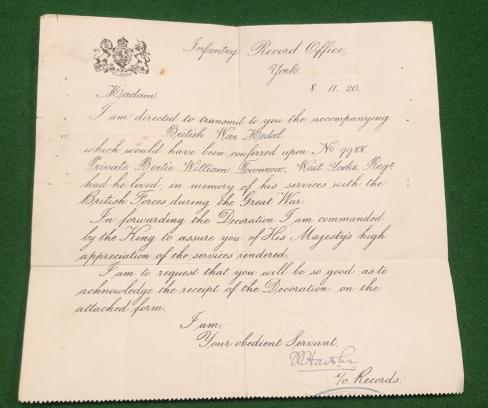 Infantry Record Office,
York.
8. 11. 20.
Madam,
I am directed to transmit to you the accompanying
British War Medal
which would have been conferred upon No 9988
Private Bertie William Townrow, West Yorks. Regt
had he lived, in memory of his services with the
British Forces during the Great War.
In forwarding the Decoration I am commanded
by the King to assure you of His Majesty's high
appreciation of the services rendered.
I am to request that you will be so good as to
acknowledge the receipt of the Decoration on the
attached form.
I am,
Your obedient Servant,
I/c Records.